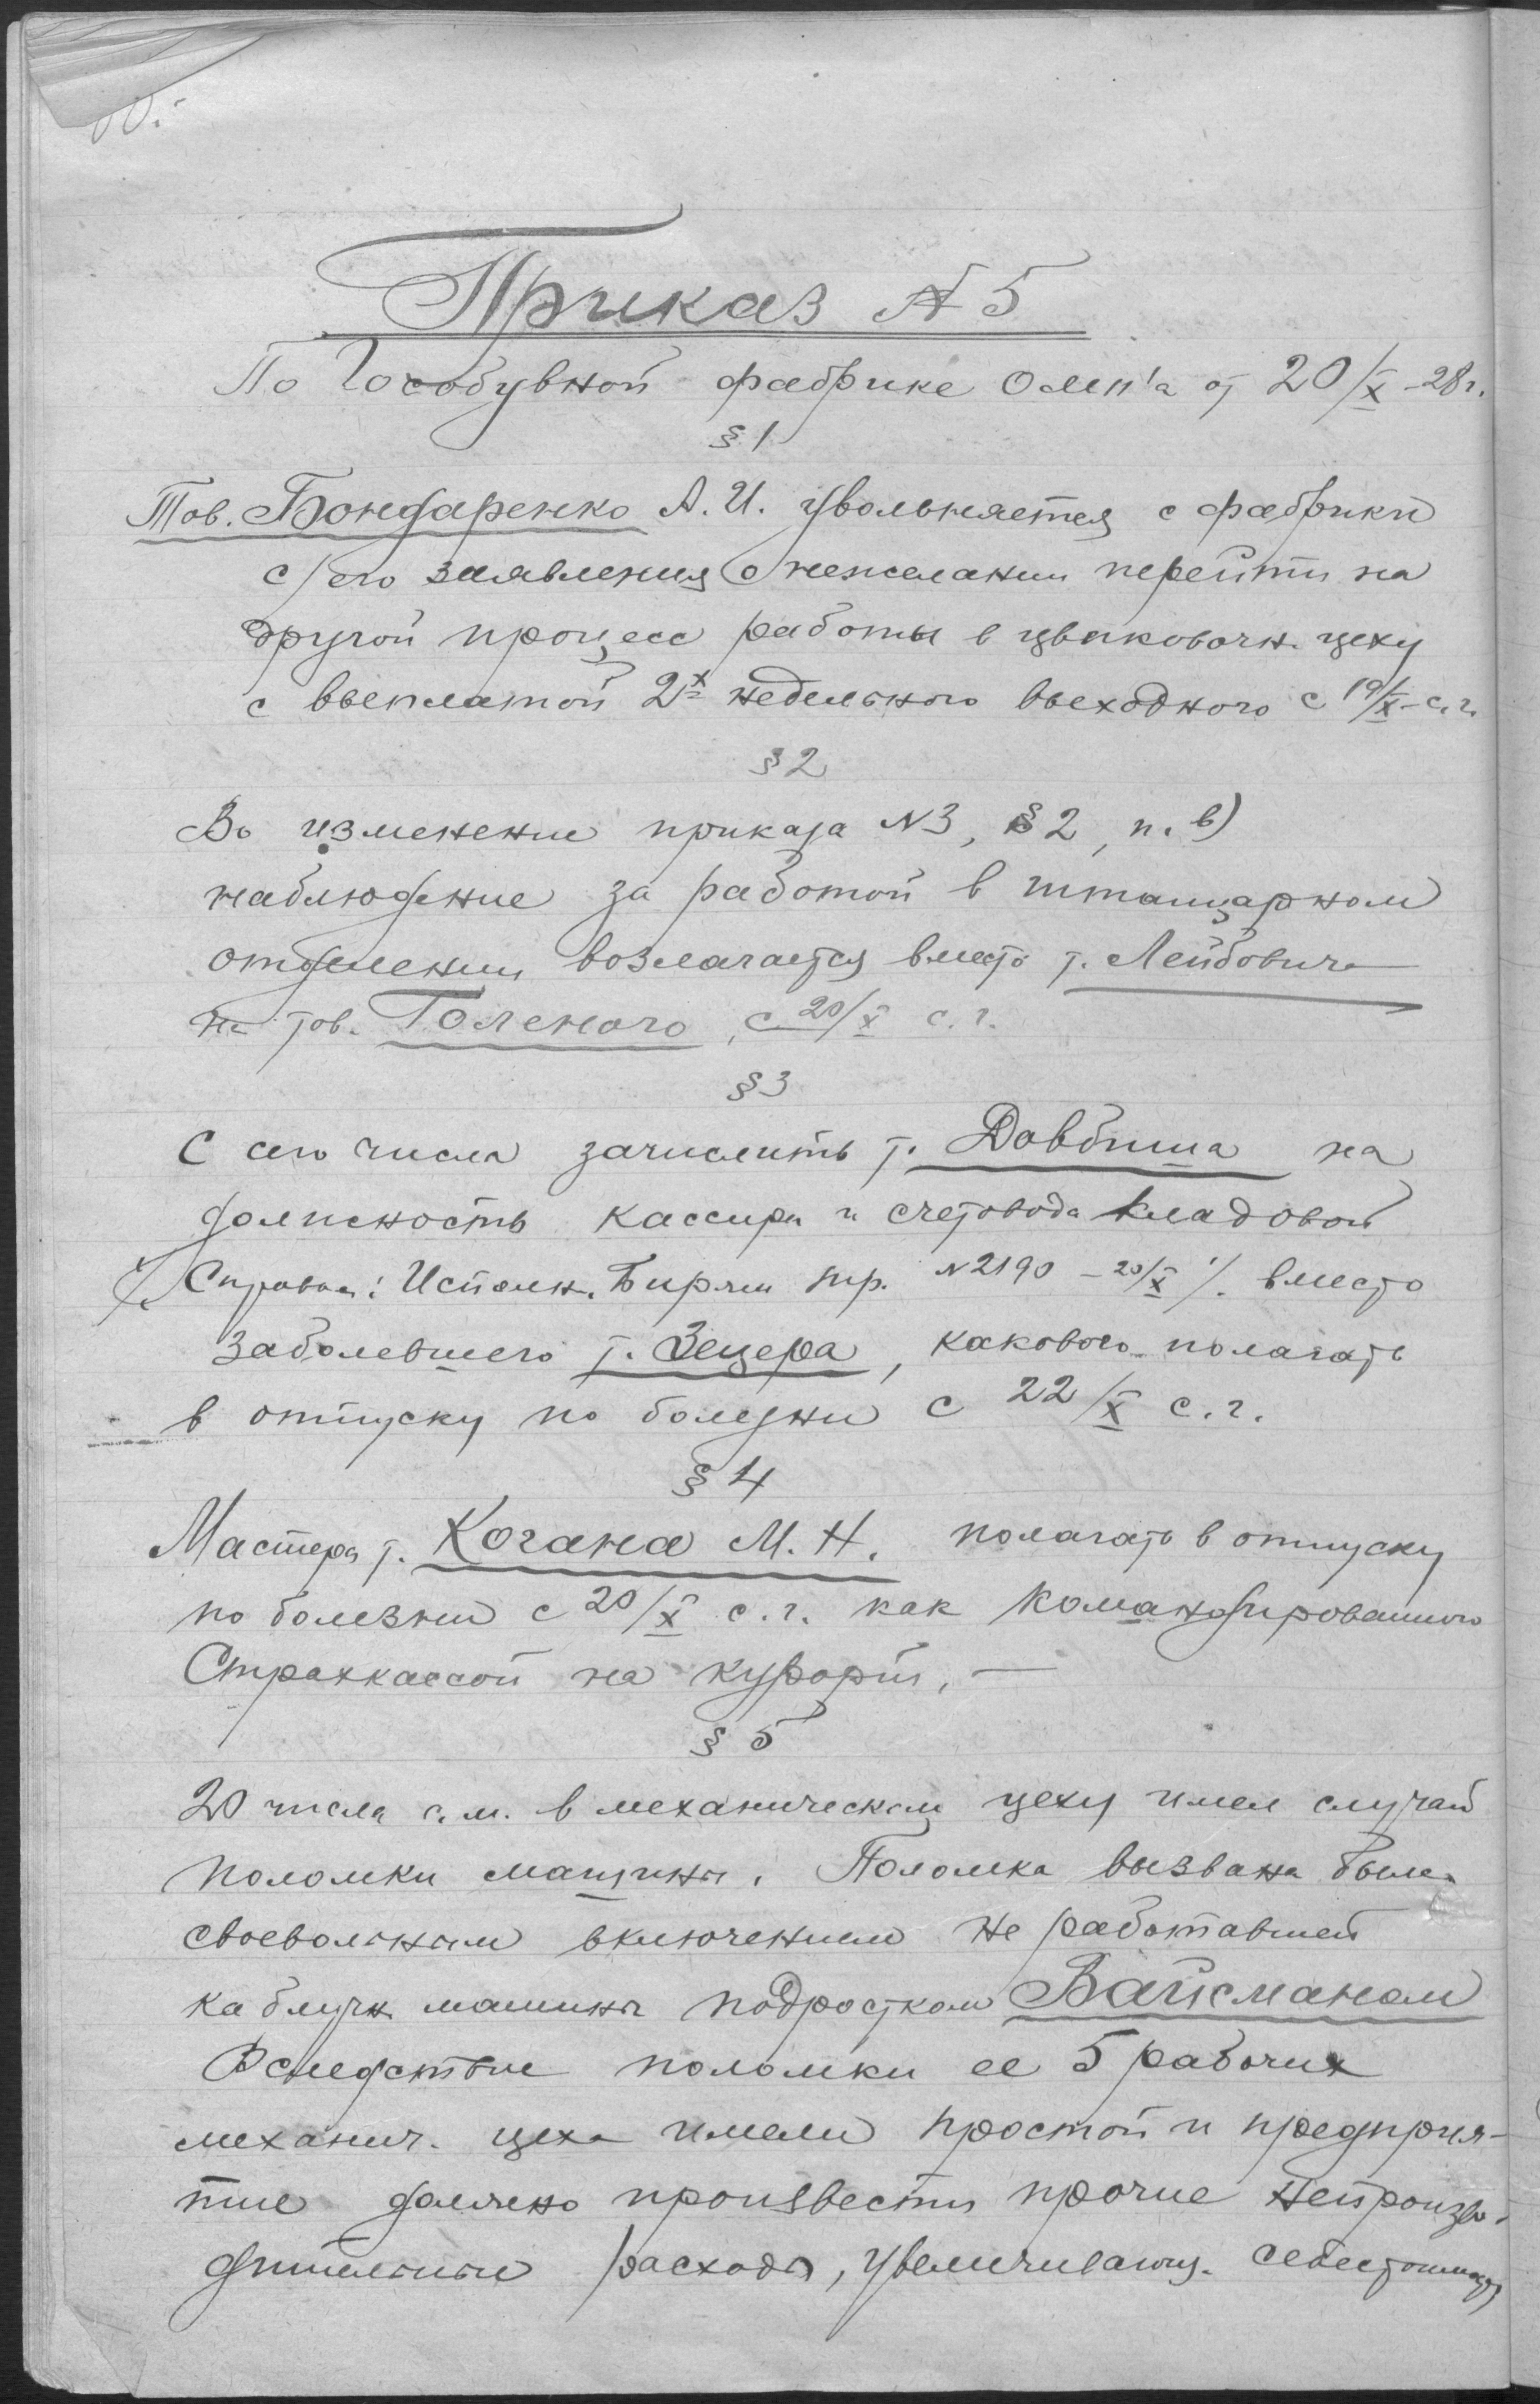 Приказ № 5
По Гособувной фабрике от 20/X-28 г.
§ 1
Тов. Бондаренко А. И. увольняется с фабрики
с/его заявления о нежелании перейти на
другой процесс работы в цвиковочн. цеху
с выплатой 2х недельного выходного с 19/X-с. г.
§ 2
Во изменение приказа № 3, § 2, п. в)
наблюдение за работой в штанцарном
отделении возлагается вместо т. Лейбовича
на тов. Голеного, с 20/X с. г.
§ 3
С сего числа зачислить т. Довбиша на
должность кассира и счетовода кладовой
Справка: Исполн. Биржи тр. № 2190 - 20/X вместо
заболевшего т. Зецера, какового полагать
в отпуску по болезни с 22/X с. г.
§ 4
Мастера т. Когана М. Н. полагать в отпуску
по болезни с 20/X с. г. как командированного
Страхкассой на курорт. —
§ 5
20 числа с. м. в механическом цеху имел случай
поломки машины. Поломка вызвана была
своевольным включением не работавшей
каблучн. машины подростком Вайсманом
Вследствие поломки ее 5 рабочих
механич. цеха имели простой и предприя-
тие должно произвести прочие непроизво-
дительные расходы, увеличивающ. себестоимость